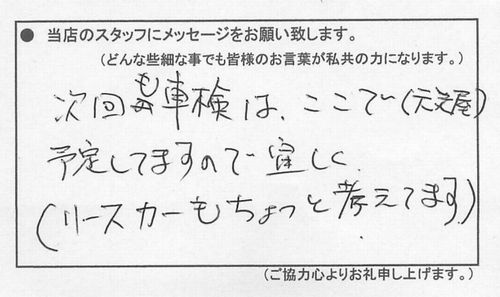 ● 当店のスタッフにメッセージをお願い致します。
(どんな些細な事でも皆様のお言葉が私共の力になります。)
次回も車検は、ここで(元気屋)
予定してますので宜しく
(リースカーもちょっと考えてます)
(ご協力心よりお礼申し上げます。)